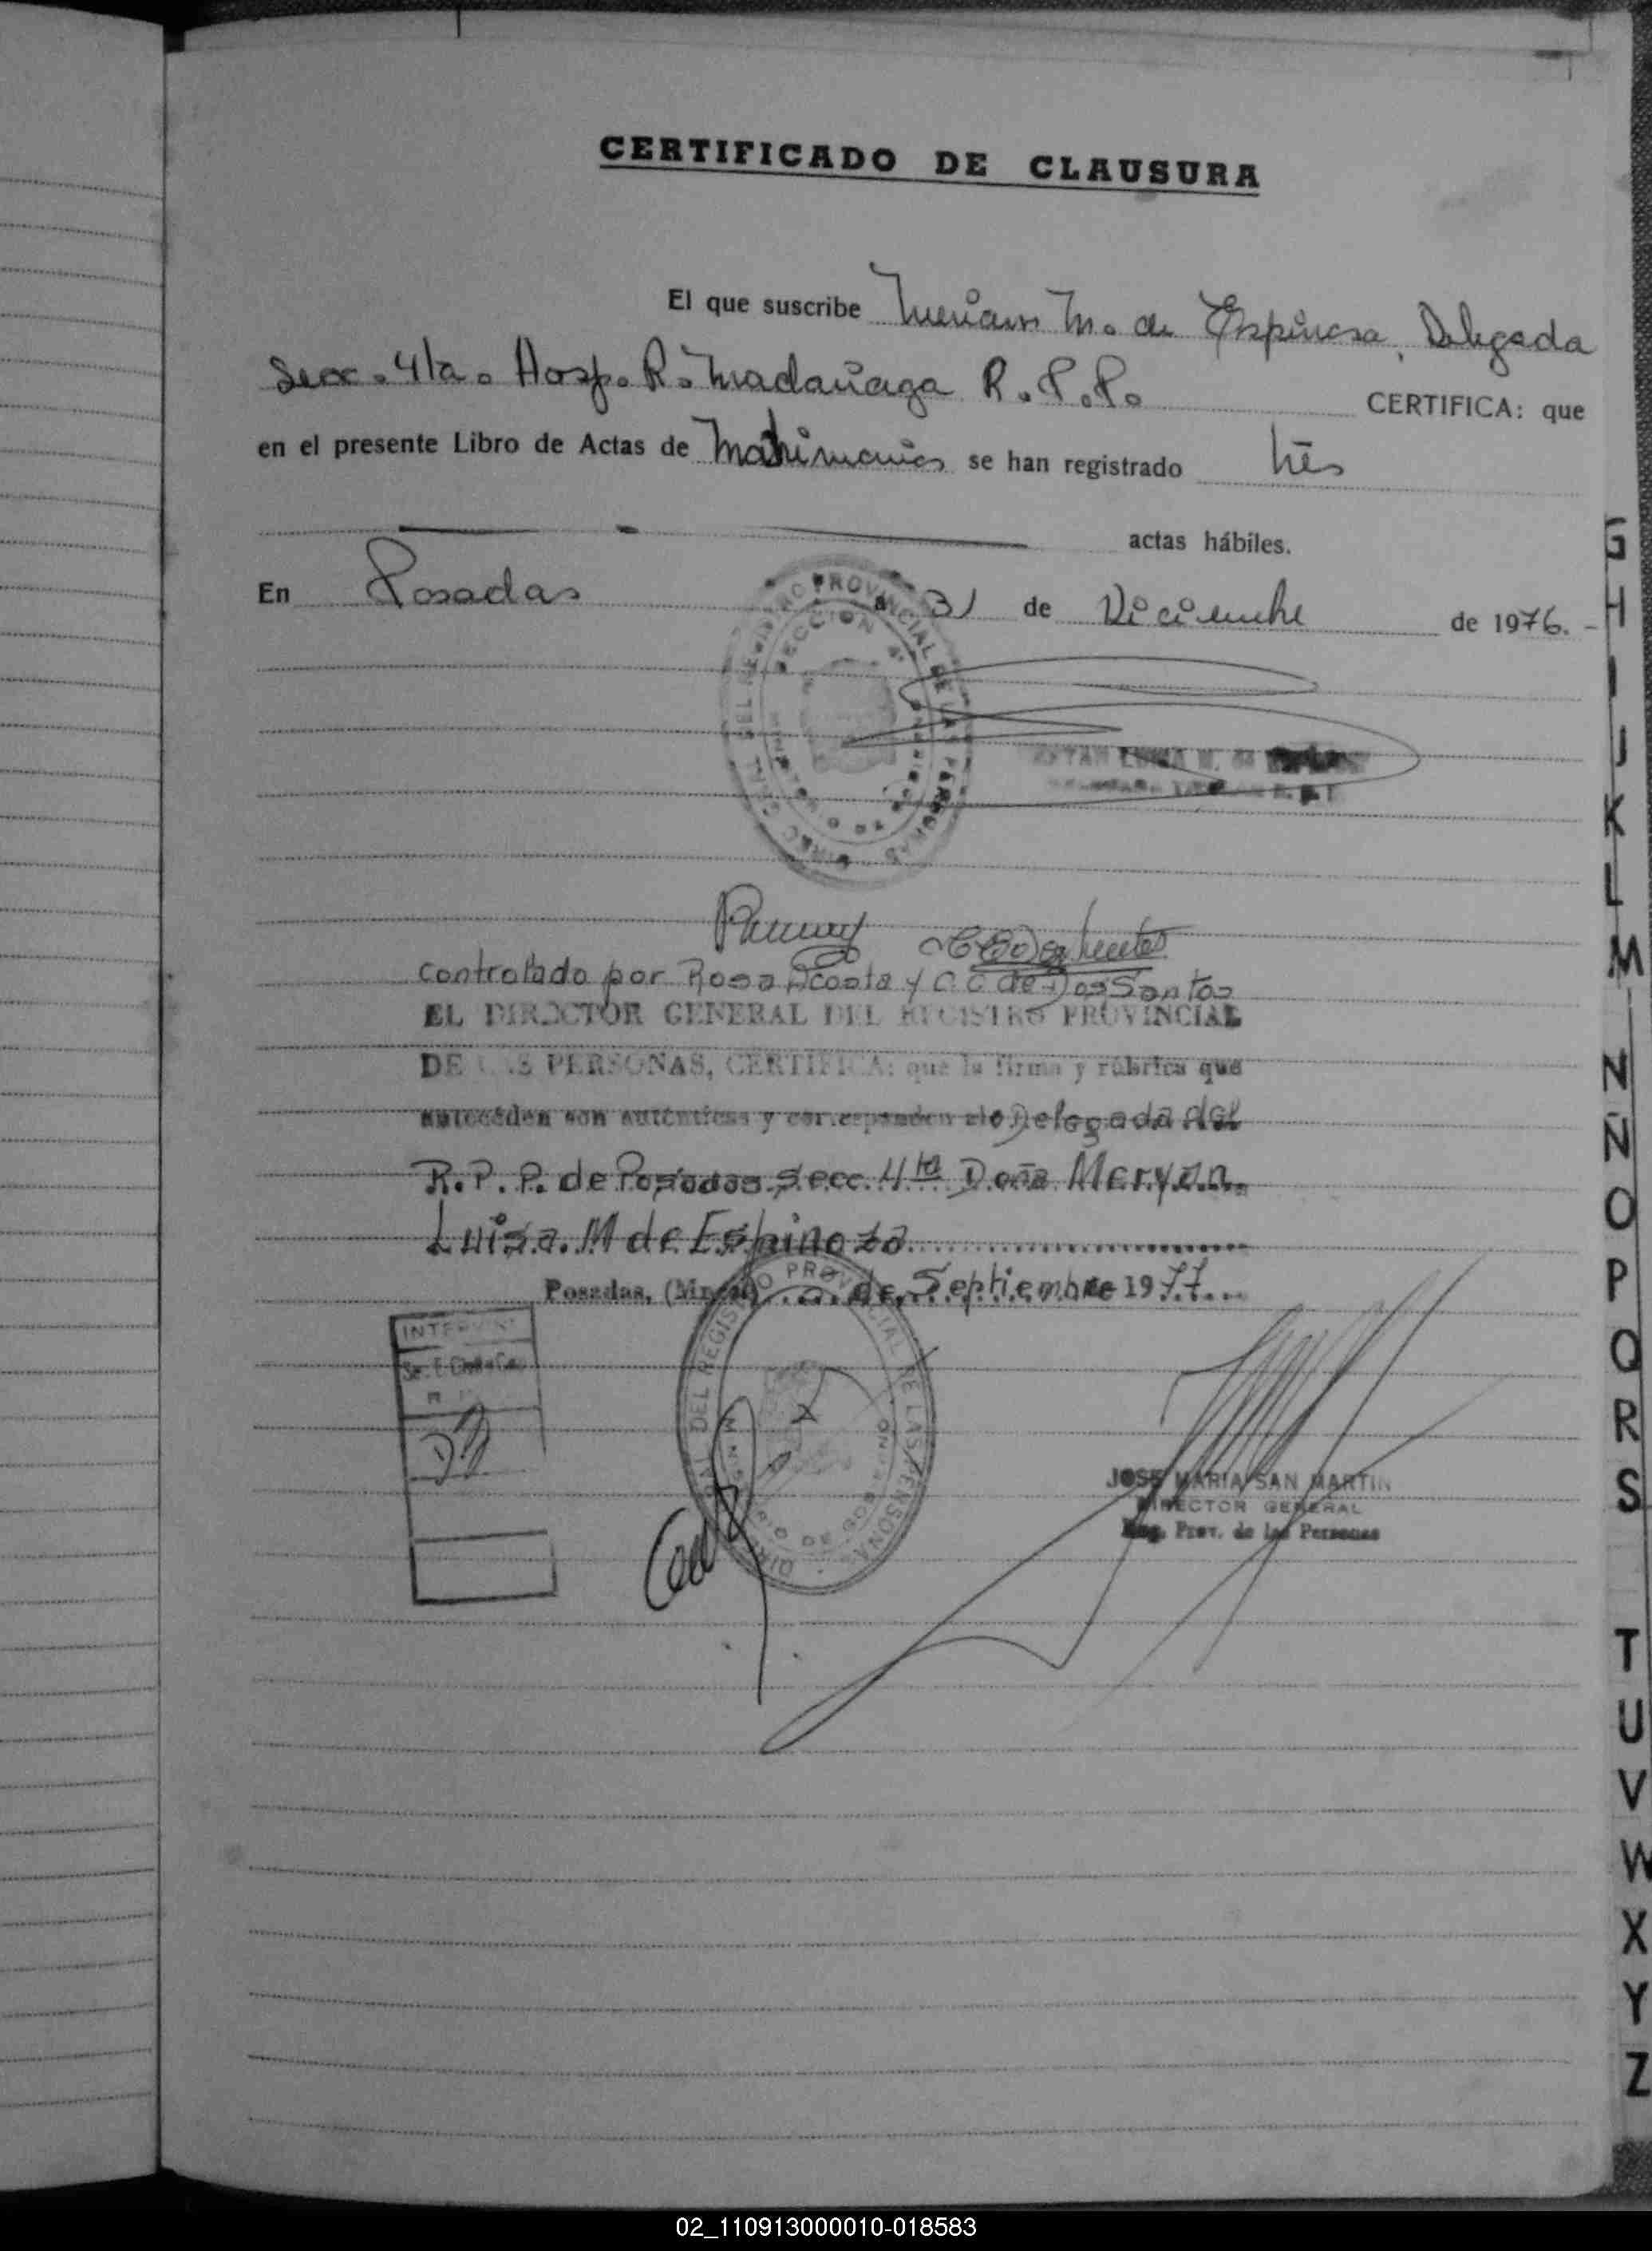 CERTIFICADO DE CLAUSURA
El que suscribe Meriam M. de Espinosa, Delegada
Secc. 4ta. Hosp. R. Madariaga R.P.P. CERTIFICA: que
en el presente Libro de Actas de Matrimonios se han registrado trés
actas hábiles.
En Posadas a 31 de Diciembre de 1976.-
controlado por Rosa Acosta y C. C de Dos Santos
EL DIRECTOR GENERAL DEL REGISTRO PROVINCIAL
DE LAS PERSONAS, CERTIFICA: que la firma y rúbrica que
anteceden son auténticas y corresponden a la Delegada del
R.P.P. de Posadas Secc. 4ta Doña Meryan
Luisa M de Espinoza
Posadas, (Mnes) de Septiembre 1977
JOSE MARIA SAN MARTIN
DIRECTOR GENERAL
Reg. Prov. de las Personas
G
H
I
J
K
L
M
N
Ñ
O
P
Q
R
S
T
U
V
W
X
Y
Z
02_110913000010-018583